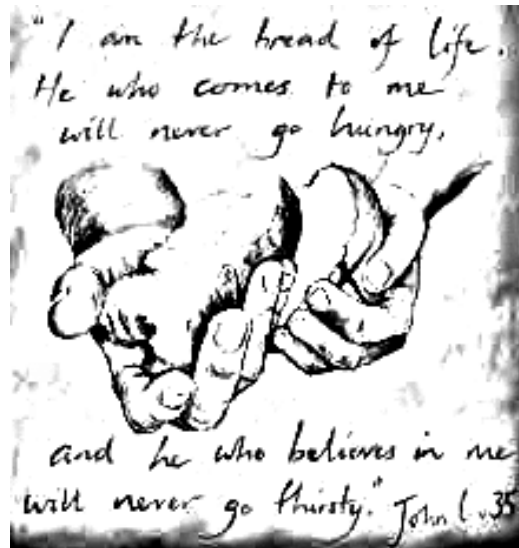 "I am the bread of life.
He who comes to me
will never go hungry,
and he who believes in me
will never go thirsty." John 6 v.35